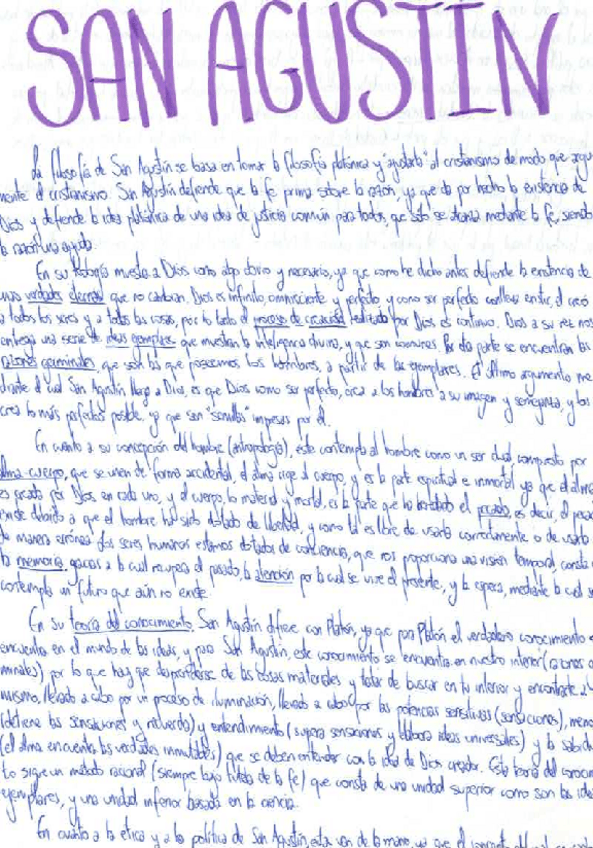 SAN AGUSTIN
La filosofía de San Agustín se basa en tomar la filosofía platónica y "ajustarla" al cristianismo de modo que argu
mente el cristianismo. San Agustín defiende que la fe prima sobre la razón, ya que da por hecho la existencia de
Dios y defiende la idea platónica de una idea de justicia común para todos, que sólo se alcanza mediante la fe, siendo
la razón una ayuda.
En su teología muestra a Dios como algo obvio y necesario, ya que como he dicho antes defiende la existencia de
unas verdades eternas que no cambian. Dios es infinito, omnisciente y perfecto y como ser perfecto conlleva existir, él creó
a todos los seres y a todas las cosas, por lo tanto el proceso de creación realizado por Dios es continuo. Dios a su vez nos
entrega una serie de ideas ejemplares que muestran la inteligencia divina, y que son comunes. Por otra parte se encuentran las
razones germinales, que son las que poseemos los hombres, a partir de las ejemplares. El último argumento me
diante el cual San Agustín llega a Dios, es que Dios como ser perfecto, crea a los hombres a su imagen y semejanza, y los
crea lo más perfectos posible, ya que son "semillas" impresas por él.
En cuanto a su concepción del hombre (antropología), éste contempla al hombre como un ser dual compuesto por
alma-cuerpo, que se unen de forma accidental, el alma rige al cuerpo, y es la parte espiritual e inmortal ya que el alma
es creada por Dios en cada uno, y el cuerpo, lo material y mortal, es la parte que ha heredado el pecado, es decir, el pecado
existe debido a que el hombre ha sido dotado de libertad, y como tal es libre de usarlo correctamente o de usarlo
de manera errónea. Los seres humanos estamos dotados de conciencia, que nos proporciona una visión temporal, consta de
la memoria, gracias a la cual recupera el pasado, la atención por la cual se vive el presente, y la espera, mediante la cual se
contempla un futuro que aún no existe.
En su teoría del conocimiento, San Agustín difiere con Platón, ya que para Platón el verdadero conocimiento se
encuentra en el mundo de las ideas, y para San Agustín, este conocimiento se encuentra en nuestro interior (razones ger
minales) por lo que hay que desprenderse de las cosas materiales y tratar de buscar en tu interior y encontrarte a ti
mismo, llevado a cabo por un proceso de iluminación, llevado a cabo por las potencias sensitivas (sensaciones), memoria
(detiene las sensaciones y recuerdo) y entendimiento (supera sensaciones y elabora ideas universales) y la sabiduría
(el alma encuentra las verdades inmutables) que se deben entender con la idea de Dios creador. Esta teoría del conocimien
to sigue un método racional (siempre bajo tutela de la fe) que consta de una unidad superior como son las ideas
ejemplares, y una unidad inferior basada en la ciencia.
En cuanto a la ética y a la política de San Agustín, ésta van de la mano, ya que el concepto